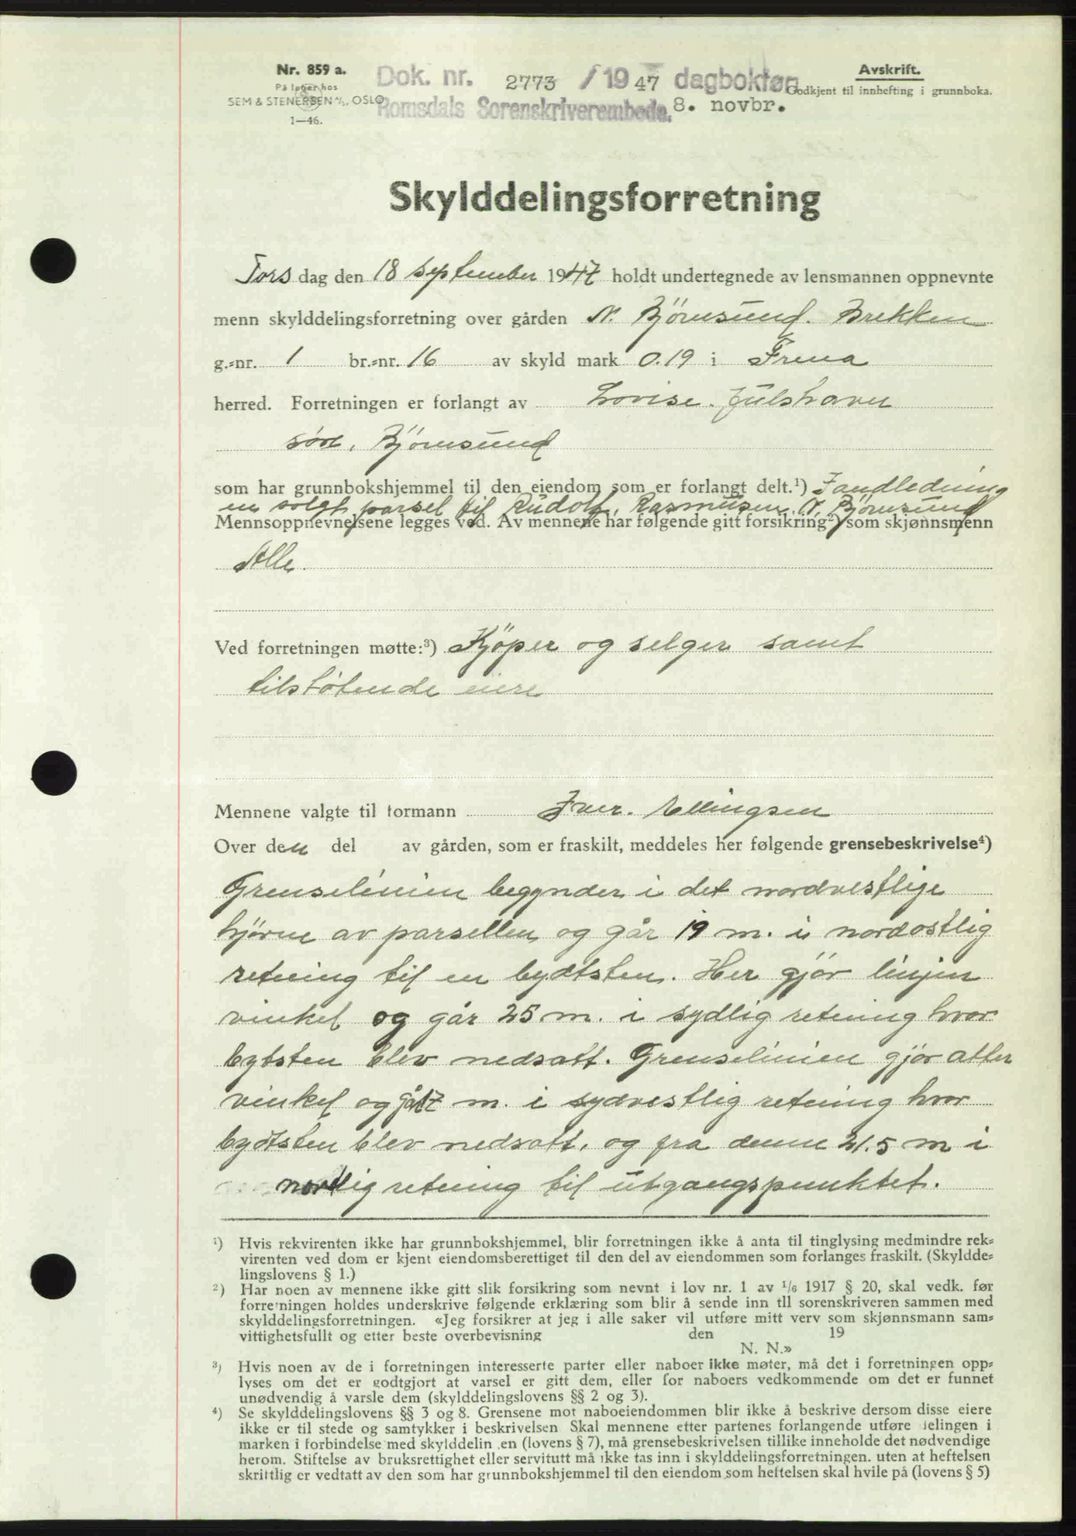 Nr. 859 a.
På lager hos
SEM & STENERSEN A/S, OSLO
1—46.
Dok. nr. 2773 / 1947 dagboktøn
Romsdals Sorenskriverembede. 8. novbr.
Avskrift.
Godkjent til innhefting i grunnboka.
Skylddelingsforretning
Torsdag den 18 september 1947 holdt undertegnede av lensmannen oppnevnte
menn skylddelingsforretning over gården N. Björnsund. Brekken
g.-nr. 1 br.-nr. 16 av skyld mark 0.19 i Frena
herred. Forretningen er forlangt av Lovise. Julshavn
sör, Björnsund
som har grunnbokshjemmel til den eiendom som er forlangt delt.¹) I andledning
en solgt parsel til Rudolf. Rasmusen. N. Björnsund
Mennsoppnevnelsene legges ved. Av mennene har følgende gitt forsikring²) som skjønnsmenn
Alle.
Ved forretningen møtte:³) Kjöper og selger samt
tilstøtende eiere
Mennene valgte til formann Iver. Ellingsen
Over den del av gården, som er fraskilt, meddeles her følgende grensebeskrivelse⁴)
Grenselinien begynder i det nordvestlige
hjørne av parsellen og går 19 m. i nordostlig
retning til en bydtsten. Her gjör linjin
vinkel og går 25 m. i sydlig retning hvor
bytsten blev nedsatt. Grenselinien gjör atter
vinkel og går 17 m. i sydvestlig retning hvor
bydtsten blev nedsatt, og fra denne 21.5 m i
nordlig retning til utgangspunktet.
¹) Hvis rekvirenten ikke har grunnbokshjemmel, blir forretningen ikke å anta til tinglysing medmindre rek-
virenten ved dom er kjent eiendomsberettiget til den del av eiendommen som forlanges fraskilt. (Skyldde-
lingslovens § 1.)
²) Har noen av mennene ikke gitt slik forsikring som nevnt i lov nr. 1 av 1/6 1917 § 20, skal vedk. før
forretningen holdes underskrive følgende erklæring som blir å sende inn til sorenskriveren sammen med
skylddelingsforretningen. «Jeg forsikrer at jeg i alle saker vil utføre mitt verv som skjønnsmann sam-
vittighetsfullt og etter beste overbevisning den 19
N. N.»
³) Hvis noen av de i forretningen interesserte parter eller naboer ikke møter, må det i forretningen opp-
lyses om det er godtgjort at varsel er gitt dem, eller for naboers vedkommende om det er funnet
unødvendig å varsle dem (skylddelingslovens §§ 2 og 3).
⁴) Se skylddelingslovens §§ 3 og 8. Grensene mot naboeiendommen blir ikke å beskrive dersom disse eiere
ikke er til stede og samtykker i beskrivelsen Skal mennene etter partenes forlangende utføre delingen i
marken i forbindelse med skylddelin en (lovens § 7), må grensebeskrivelsen tillike inneholde det nødvendige
herom. Stiftelse av bruksrettighet eller servitutt må ikke tas inn i skylddelingsforretningen. uten at heftelsen
skriftlig er vedtatt av den som har grunnbokshjemmel til den eiendom som heftelsen skal hvile på (lovens § 5)